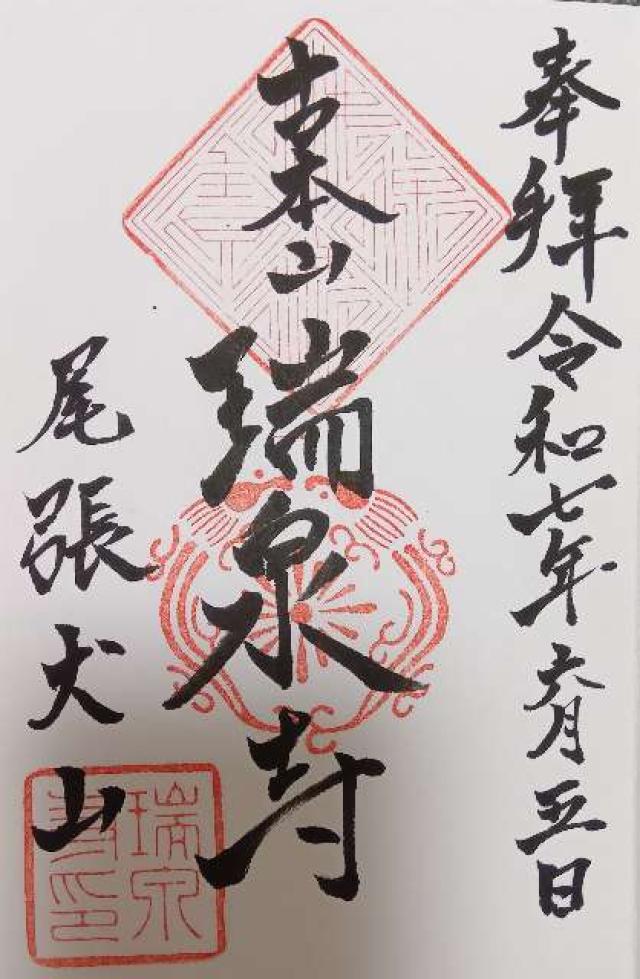 奉拝 令和七年 六月五日
古本山
瑞泉寺
尾張犬山
瑞泉寺印